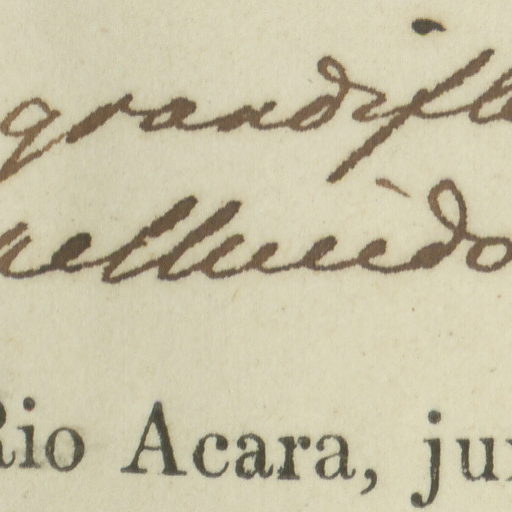 grandifl
pellucido
Rio Acara, jun